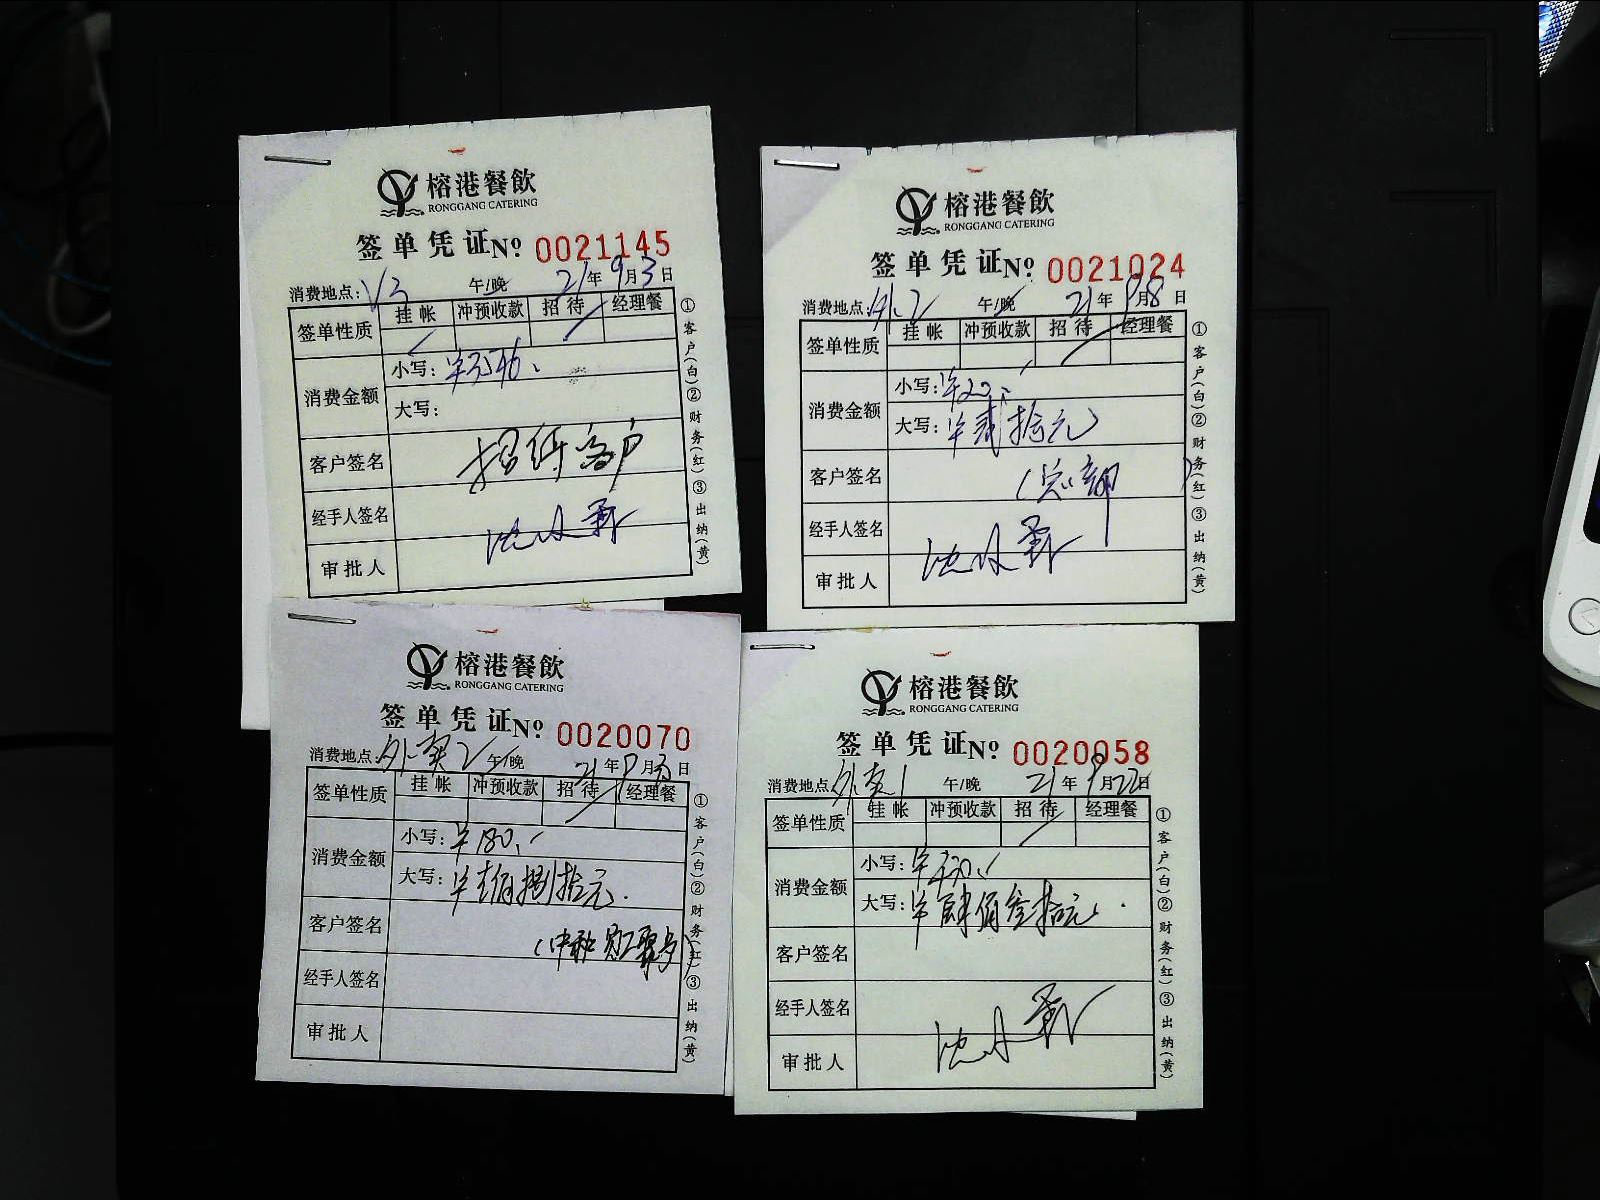 榕港餐飲
RONGGANG CATERING
签单凭证 Nº 0021145
消费地点: V3 午/晚 21年9月3日
签单性质 挂帐 冲预收款 招待 经理餐
消费金额 小写:
大写:
客户签名 招待客户
经手人签名
审批人
①客户(白)②财务(红)③出纳(黄)
榕港餐飲
RONGGANG CATERING
签单凭证 Nº 0021024
消费地点: 外2 午/晚 21年9月8日
签单性质 挂帐 冲预收款 招待 经理餐
消费金额 小写: ¥20.
大写: ¥贰拾元
客户签名 (总部)
经手人签名
审批人
①客户(白)②财务(红)③出纳(黄)
榕港餐飲
RONGGANG CATERING
签单凭证 Nº 0020070
消费地点: 外卖2 午/晚 21年9月 日
签单性质 挂帐 冲预收款 招待 经理餐
消费金额 小写: ¥180.
大写: ¥壹佰捌拾元.
客户签名 (中秋员工聚
经手人签名
审批人
①客户(白)②财务(红)③出纳(黄)
榕港餐飲
RONGGANG CATERING
签单凭证 Nº 0020058
消费地点: 外卖1 午/晚 21年9月22日
签单性质 挂帐 冲预收款 招待 经理餐
消费金额 小写: ¥430.
大写: ¥肆佰叁拾元.
客户签名
经手人签名
审批人
①客户(白)②财务(红)③出纳(黄)